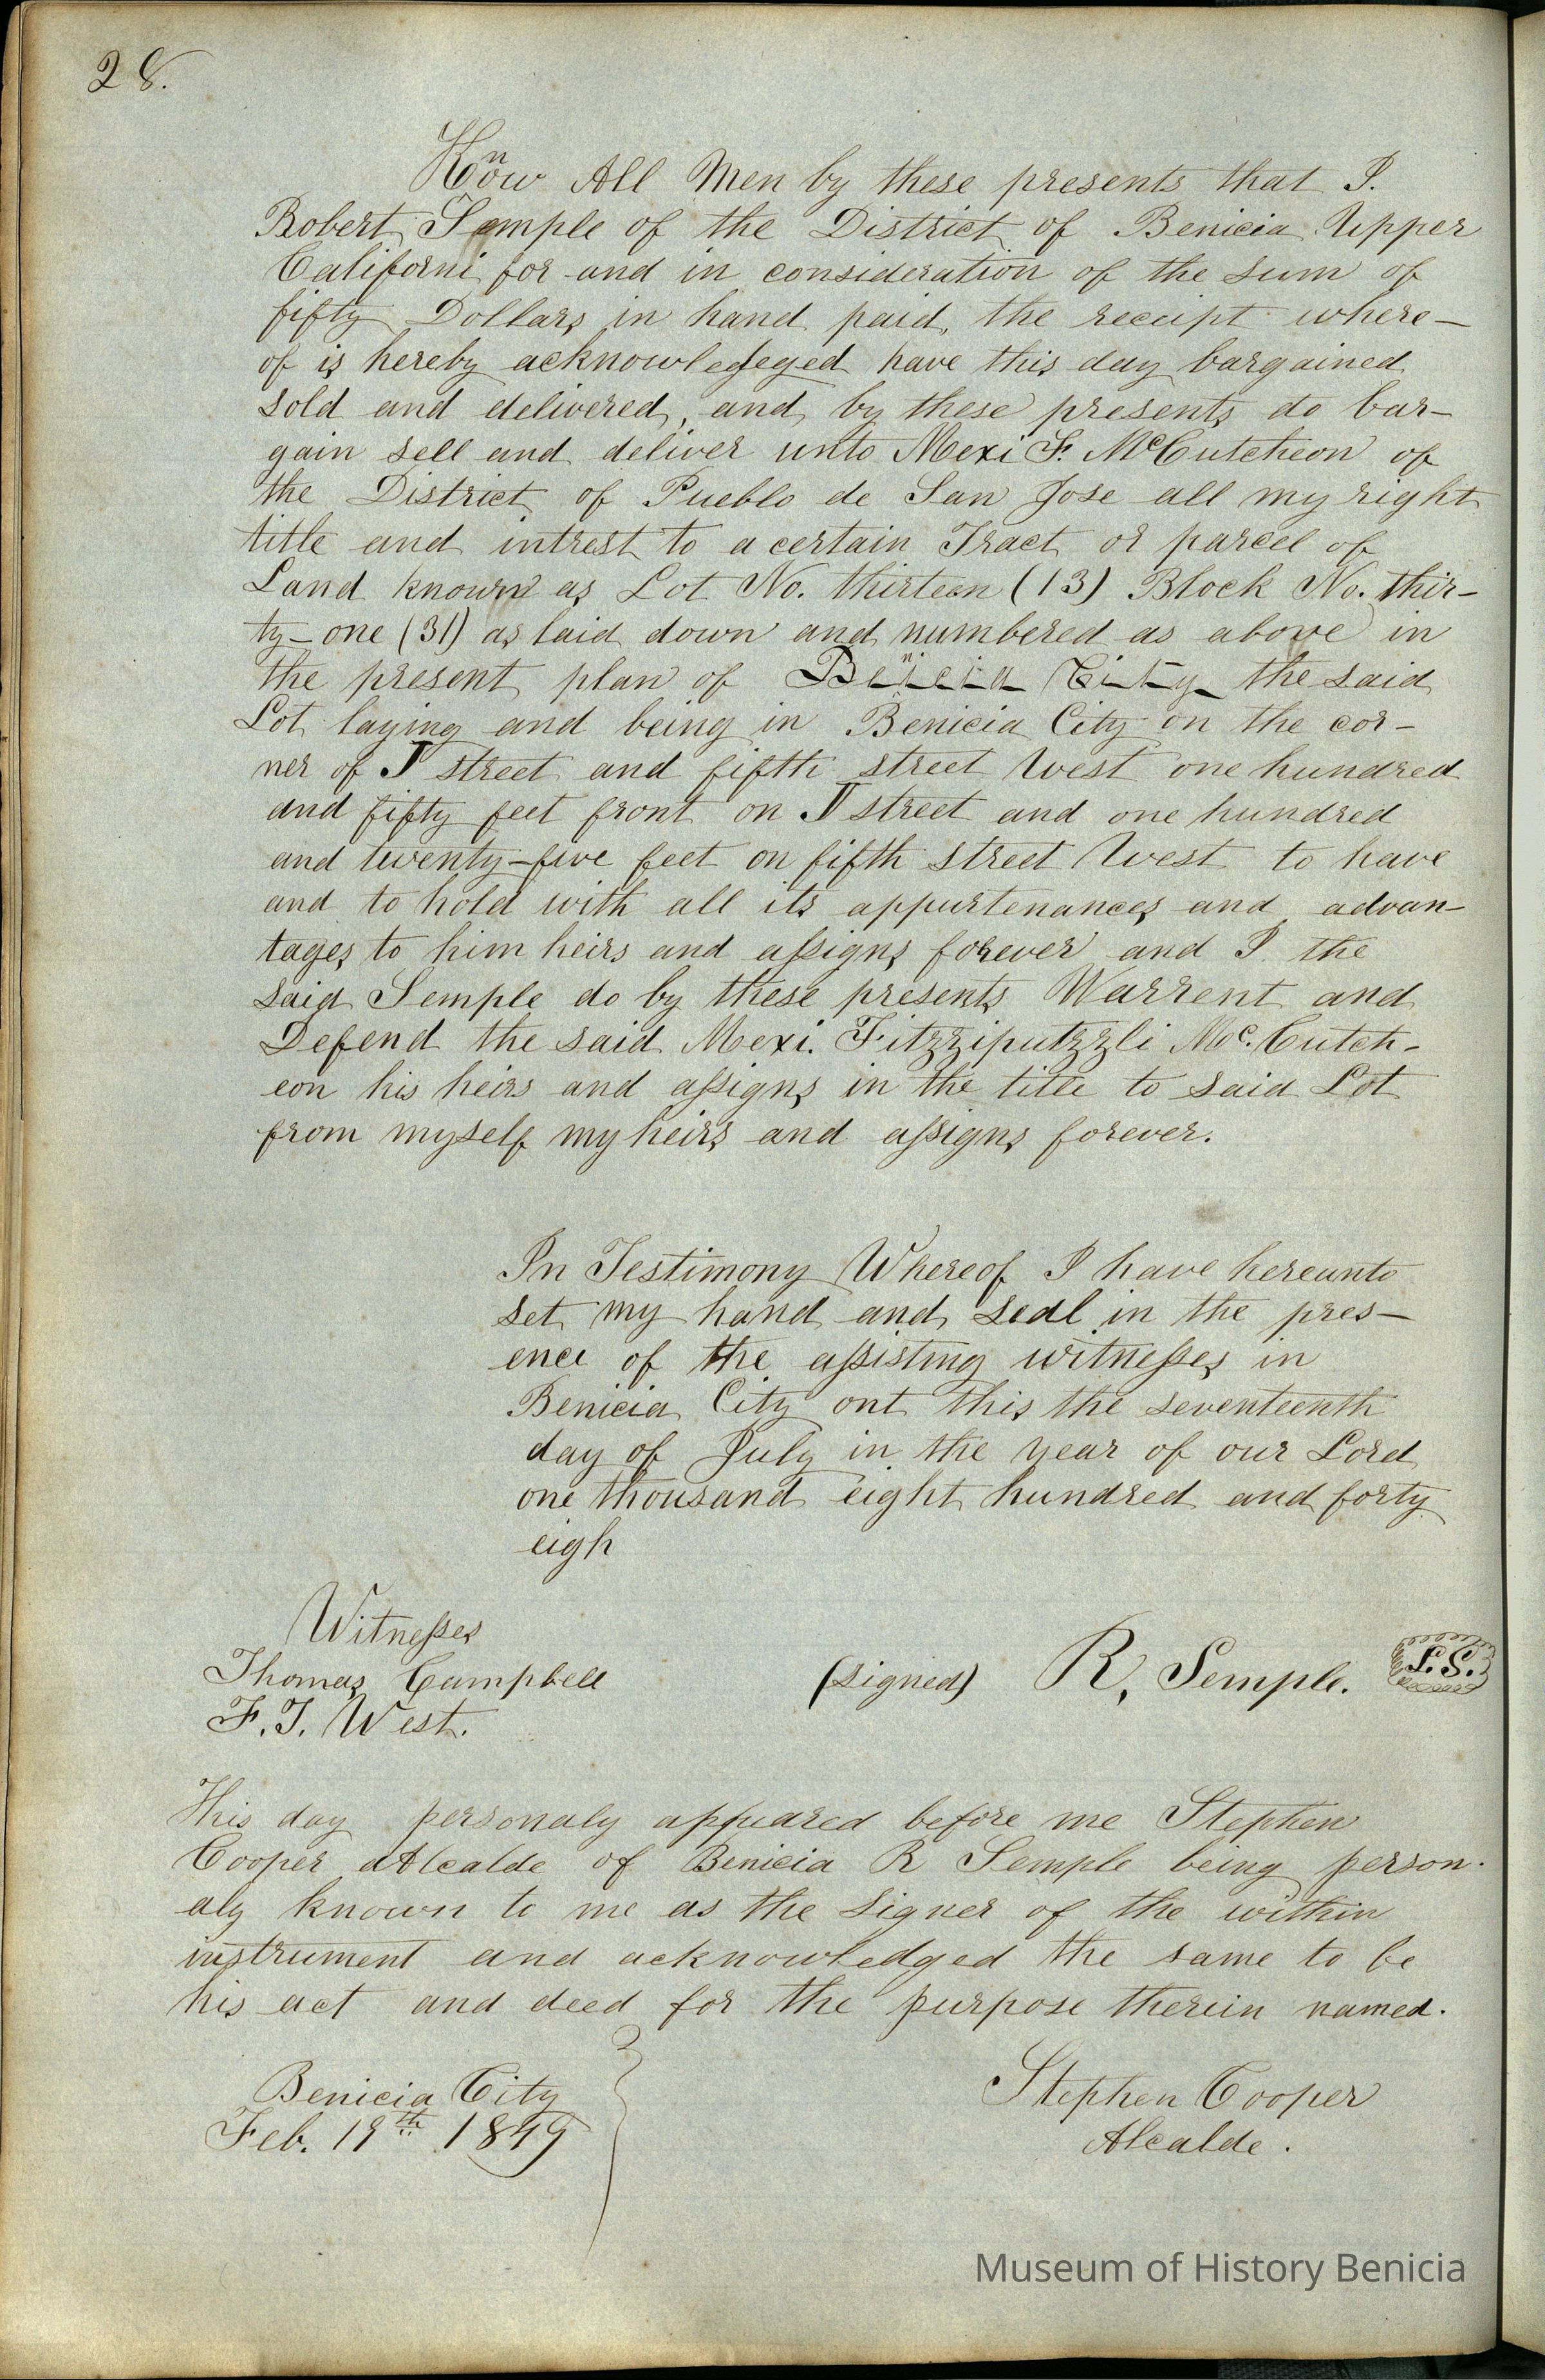 28.
Know All Men by these presents that I.
Robert Semple of the District of Benicia Upper
Californi for and in consideration of the sum of
fifty Dollars in hand paid, the receipt where-
of is hereby acknowledeged have this day bargained
sold and delivered, and by these presents do bar-
gain sell and deliver unto Mexi F. McCutcheon of
the District of Pueblo de San Jose all my right
title and intrest to a certain Tract or parcel of
Land known as Lot No. thirteen (13) Block No. thir-
ty-one (31) as laid down and numbered as above in
the present plan of Benicia City the said
Lot laying and being in Benicia City on the cor-
ner of J street and fifth street West one hundred
and fifty feet front on J street and one hundred
and twenty-five feet on fifth street West to have
and to hold with all its appurtenances and advan-
tages to him heirs and assigns forever and I the
said Semple do by these presents Warrent and
Defend the said Mexi. Fitzziputzzli Mc. Cutch-
eon his heirs and assigns in the title to said Lot
from myself my heirs and assigns forever.
In Testimony Whereof I have hereunto
set my hand and seal in the pres-
ence of the assisting witnesses in
Benicia City ont this the seventeenth
day of July in the year of our Lord
one thousand eight hundred and forty
eigh
Witnesses
Thomas Campbell
(signed) R. Semple. L.S.
F. T. West.
This day personaly appeared before me Stephen
Cooper Alcalde of Benicia R Semple being person.
aly known to me as the signer of the within
instrument and acknowledged the same to be
his act and deed for the purpose therein named.
Benicia City
Stephen Cooper
Feb. 19th 1849
Alcalde.
Museum of History Benicia